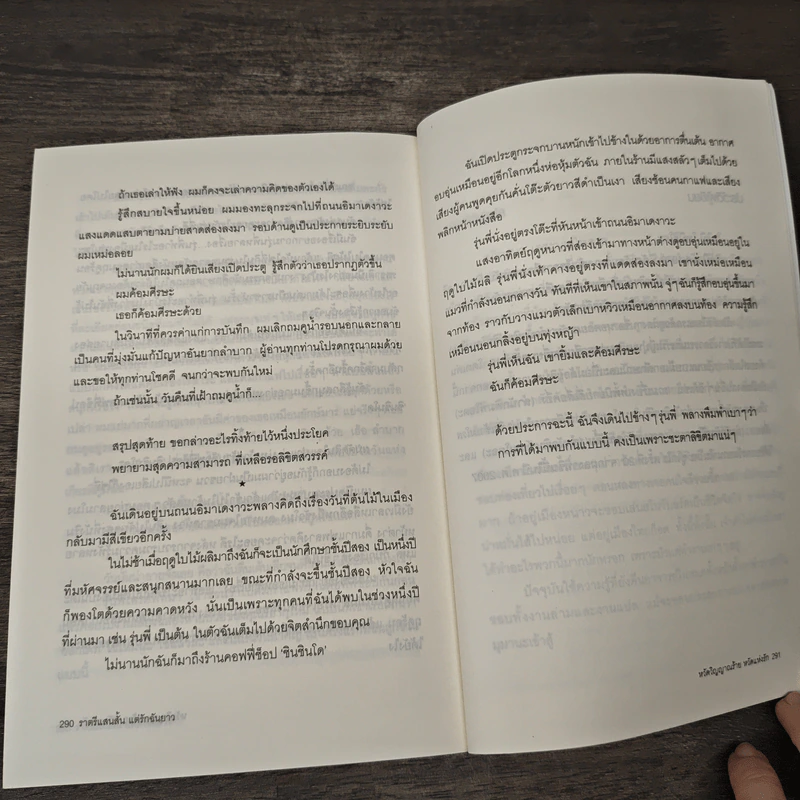 ถ้าเธอเล่าให้ฟัง ผมก็คงจะเล่าความคิดของตัวเองได้
รู้สึกสบายใจขึ้นหน่อย ผมมองทะลุกระจกไปที่ถนนอิมาเดงาวะ
แสงแดดแสบตายามบ่ายสาดส่องลงมา รอบด้านดูเป็นประกายระยิบระยับ
ผมเหม่อลอย
ไม่นานนักผมก็ได้ยินเสียงเปิดประตู รู้สึกตัวว่าเธอปรากฏตัวขึ้น
ผมค้อมศีรษะ
เธอก็ค้อมศีรษะด้วย
ในวินาทีที่ควรค่าแก่การบันทึก ผมเลิกถมคูน้ำรอบนอกและกลาย
เป็นคนที่มุ่งมั่นแก้ปัญหาอันยากลำบาก ผู้อ่านทุกท่านโปรดกรุณาผมด้วย
และขอให้ทุกท่านโชคดี จนกว่าจะพบกันใหม่
ถ้าเช่นนั้น วันคืนที่เฝ้าถมคูน้ำก็...
สรุปสุดท้าย ขอกล่าวอะไรทิ้งท้ายไว้หนึ่งประโยค
พยายามสุดความสามารถ ที่เหลือรอลิขิตสวรรค์
★
ฉันเดินอยู่บนถนนอิมาเดงาวะพลางคิดถึงเรื่องวันที่ต้นไม้ในเมือง
กลับมามีสีเขียวอีกครั้ง
ในไม่ช้าเมื่อฤดูใบไม้ผลิมาถึงฉันก็จะเป็นนักศึกษาชั้นปีสอง เป็นหนึ่งปี
ที่มหัศจรรย์และสนุกสนานมากเลย ขณะที่กำลังจะขึ้นชั้นปีสอง หัวใจฉัน
ก็พองโตด้วยความคาดหวัง นั่นเป็นเพราะทุกคนที่ฉันได้พบในช่วงหนึ่งปี
ที่ผ่านมา เช่น รุ่นพี่ เป็นต้น ในตัวฉันเต็มไปด้วยจิตสำนึกขอบคุณ
ไม่นานนักฉันก็มาถึงร้านคอฟฟี่ช็อป ‘ชินชินโด’
290 ราตรีแสนสั้น แต่รักฉันยาว
ฉันเปิดประตูกระจกบานหนักเข้าไปข้างในด้วยอาการตื่นเต้น อากาศ
อบอุ่นเหมือนอยู่อีกโลกหนึ่งห่อหุ้มตัวฉัน ภายในร้านมีแสงสลัวๆ เต็มไปด้วย
เสียงผู้คนพูดคุยกันคั่นโต๊ะตัวยาวสีดำเป็นเงา เสียงช้อนคนกาแฟและเสียง
พลิกหน้าหนังสือ
รุ่นพี่นั่งอยู่ตรงโต๊ะที่หันหน้าเข้าถนนอิมาเดงาวะ
แสงอาทิตย์ฤดูหนาวที่ส่องเข้ามาทางหน้าต่างดูอบอุ่นเหมือนอยู่ใน
ฤดูใบไม้ผลิ รุ่นพี่นั่งเท้าคางอยู่ตรงที่แดดส่องลงมา เขานั่งเหม่อเหมือน
แมวที่กำลังนอนกลางวัน ทันทีที่เห็นเขาในสภาพนั้น จู่ๆ ฉันก็รู้สึกอบอุ่นขึ้นมา
จากท้อง ราวกับวางแมวตัวเล็กเบาหวิวเหมือนอากาศลงบนท้อง ความรู้สึก
เหมือนนอนกลิ้งอยู่บนทุ่งหญ้า
รุ่นพี่เห็นฉัน เขายิ้มและค้อมศีรษะ
ฉันก็ค้อมศีรษะ
ด้วยประการฉะนี้ ฉันจึงเดินไปข้างๆ รุ่นพี่ พลางพึมพำเบาๆ ว่า
การที่ได้มาพบกันแบบนี้ คงเป็นเพราะชะตาลิขิตมาแน่ๆ
หวัดวิญญาณร้าย หวัดแห่งรัก 291